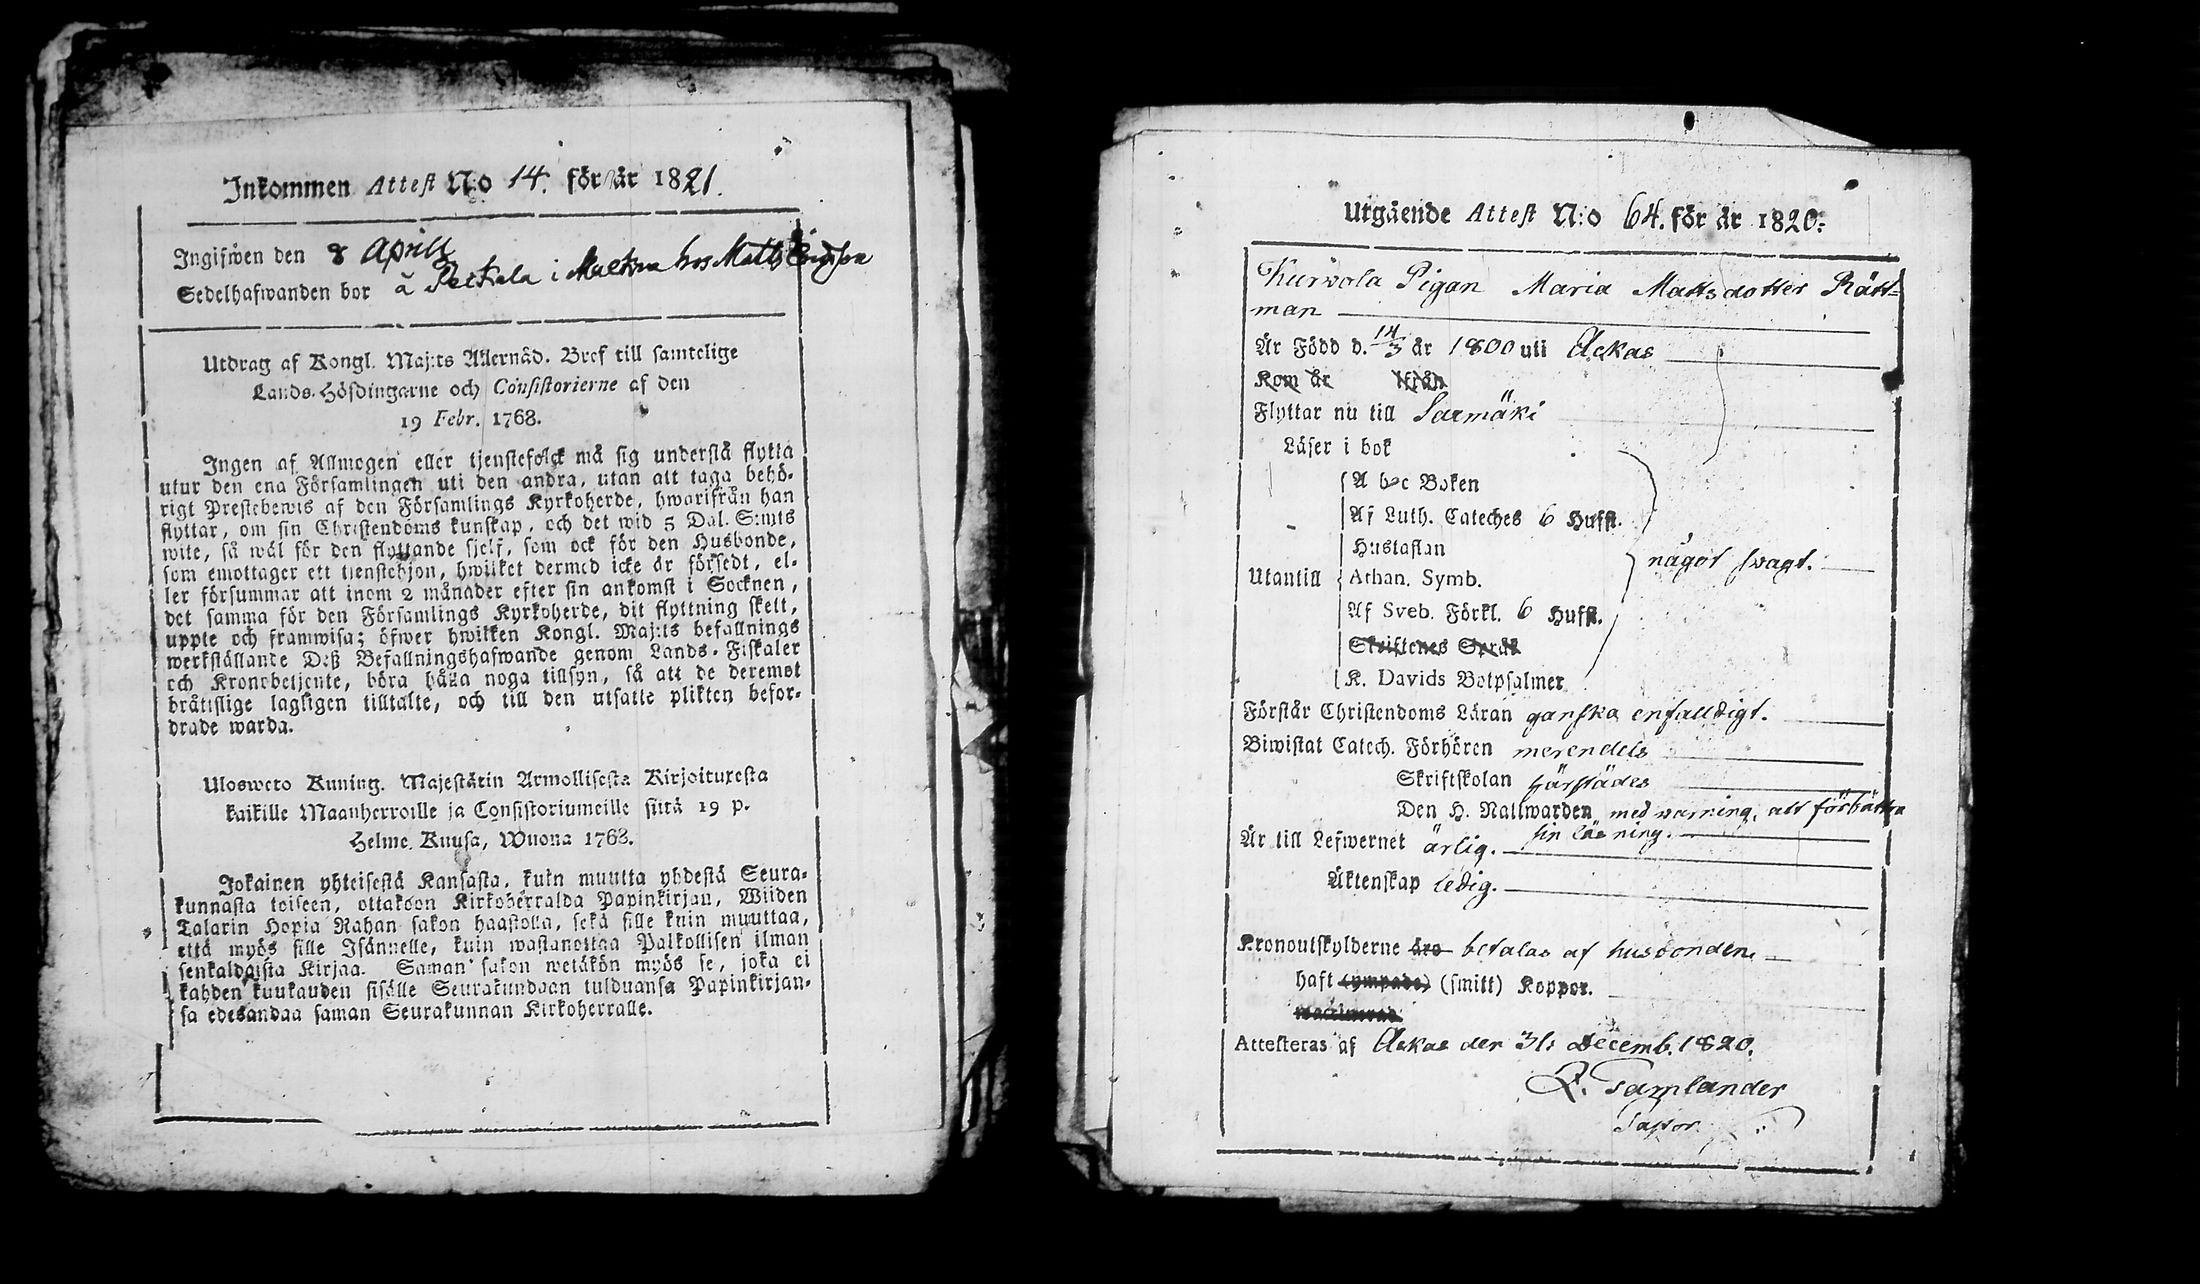 Inkommen Attest N:o 14. för år 1821.
Ingifwen den 8 Aprill
Sedelhafwanden bor à Peckala i hos Matts
Utdrag af Kongl. Maj:ts Allernåd. Bref till samtelige
Lands-Höfdingarne och Consistorierne af den
19 Febr. 1768.
Ingen af Allmogen eller tjenstefolck må sig understå flytta
utur den ena Församlingen uti den andra, utan att taga behö-
rigt Prestebewis af den Församlings Kyrkoherde, hwarifrån han
flyttar, om sin Christendoms kunskap, och det wid 5 Dal. S:mts
wite, så wäl för den flyttande sjelf, som ock för den Husbonde,
som emottager ett tjenstehjon, hwilket dermed icke är försedt, el-
ler försummar att inom 2 månader efter sin ankomst i Socknen,
det samma för den Församlings Kyrkoherde, dit flyttning skett,
uppte och framwisa; öfwer hwilken Kongl. Maj:ts befallnings
werkställande Deß Befallningshafwande genom Lands-Fiskaler
och Kronobetjente, böra hålla noga tillsyn, så att de deremot
bråttslige lagligen tilltalte, och till den utsatte plikten befor-
drade warda.
Ulosweto Kuning. Majestätin Armollisesta Kirjoituxesta
kaikille Maanherroille ja Consistoriumeille siitä 19 p.
Helme Kuusa, Wuona 1768.
Jokainen yhteisestä Kansasta, kuin muutta yhdestä Seura-
kunnasta toiseen, ottakoon Kirkoherralda Papinkirjan, Wiiden
Talarin Hopia Rahan sakon haastolla, sekä sille kuin muuttaa,
että myös sille Isännelle, kuin wastanottaa Palkollisen ilman
senkaldaista Kirjaa. Saman sakon wetäkön myös se, joka ei
kahden kuukauden sisälle Seurakundaan tulduansa Papinkirjan-
sa edesandaa saman Seurakunnan Kirkoherralle.
Utgående Attest N:o 64. för år 1820.
Kurvola Pigan Maria Mattsdotter Rätt-
man
Är Född d. 14/3 år 1800 uti Askas
Kom år ifrån
Flyttar nu till Sarmäki
Läser i bok
A b c Boken
Af Luth. Cateches 6 Hufst.
Hustaflan
Utantill Athan. Symb. något swagt.
Af Sveb. Förkl. 6 Hufst.
Skriftenes Språk
K. Davids Botpsalmer
Förstår Christendoms Läran ganska enfalldigt.
Biwistat Catech. Förhören merendels
Skriftskolan härstädes
Den H. Nattwarden med warning, att förbättra
sin läsning.
Är till Lefwernet ärlig.
Äktenskap ledig.
Kronoutskylderne äro betalas af husbonden.
haft (ympade) (smitt) Koppor.
Attesteras af Askas den 31: Decemb. 1820.
Tamlander
Pastor